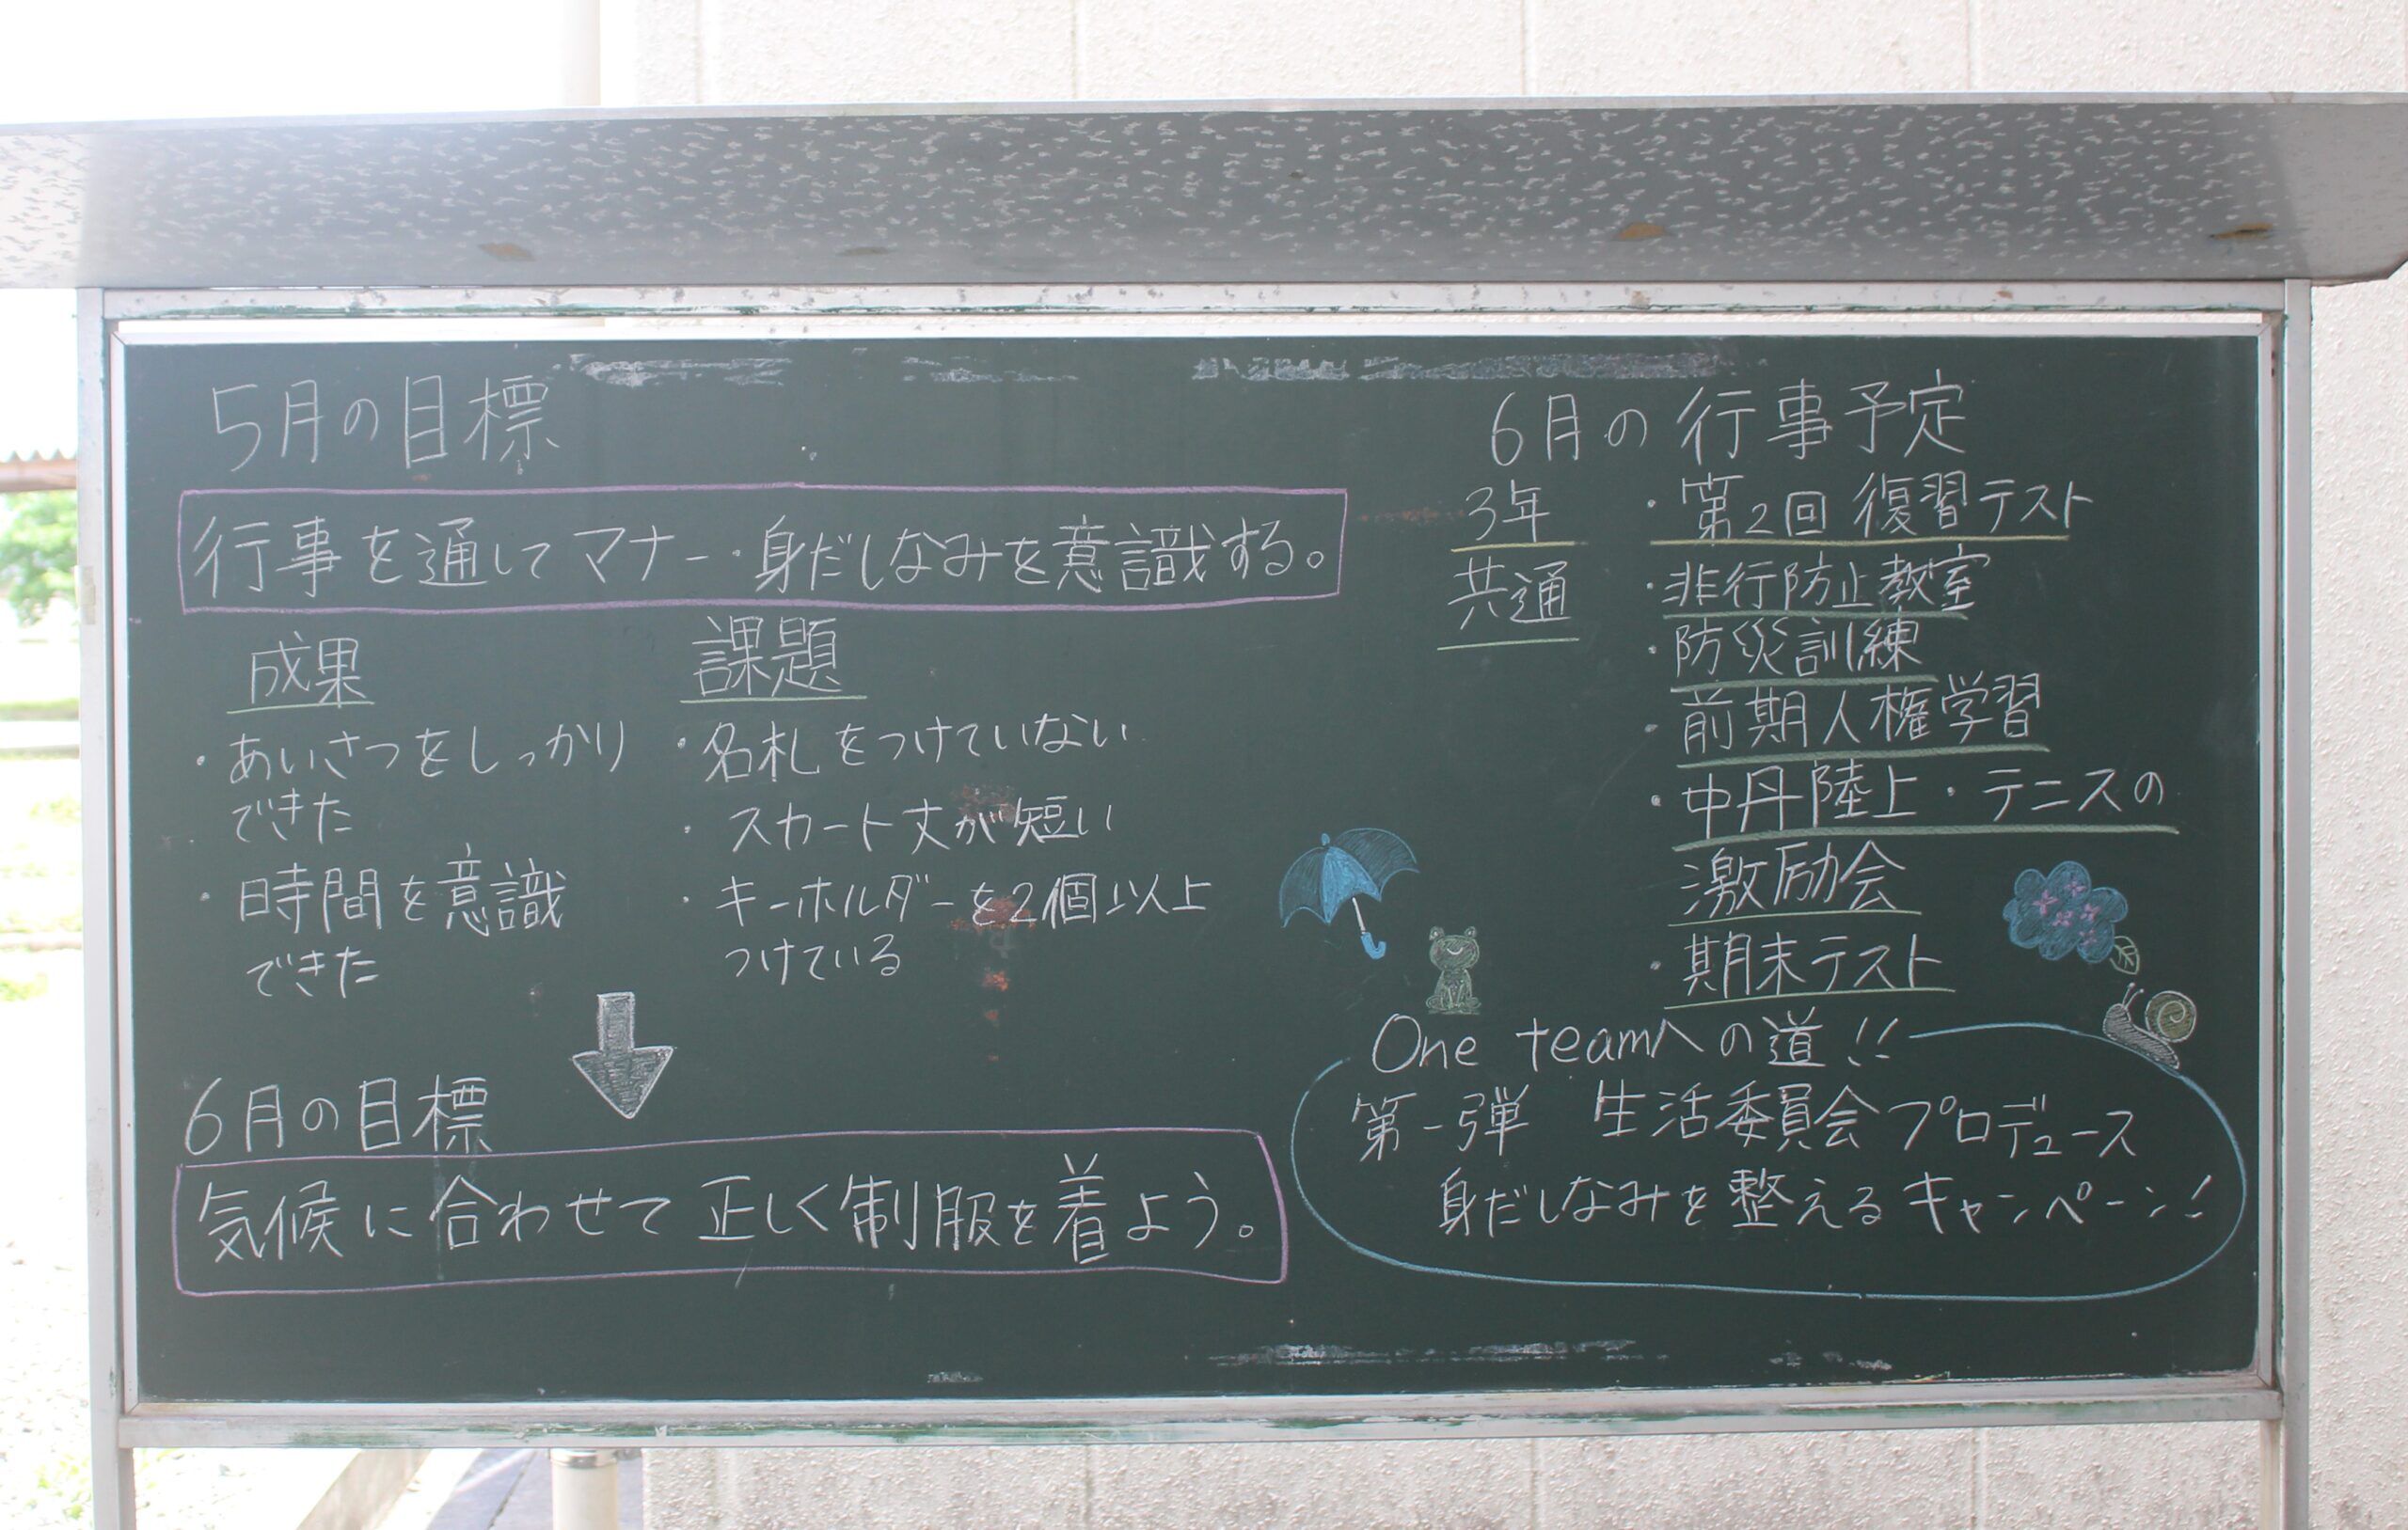 5月の目標
行事を通してマナー・身だしなみを意識する。
成果
・あいさつをしっかり
できた
・時間を意識
できた
課題
・名札をつけていない
・スカート丈が短い
・キーホルダーを2個以上
つけている
6月の目標
気候に合わせて正しく制服を着よう。
6月の行事予定
3年 ・第2回 復習テスト
共通 ・非行防止教室
・防災訓練
・前期人権学習
・中丹陸上・テニスの
激励会
・期末テスト
One teamへの道!!
第一弾 生活委員会プロデュース
身だしなみを整えるキャンペーン!